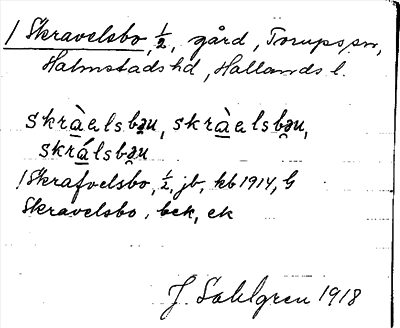 1 Skravelsbo, 1/2, gård, Torups sn,
Halmstads hd, Hallands l.
skràelsbəu, skràelsbəu,
skrálsbəu
1 Skrafvelsbo, 1/2, jb, kb 1914, G
Skravelsbo, bek, ek
J. Sahlgren 1918